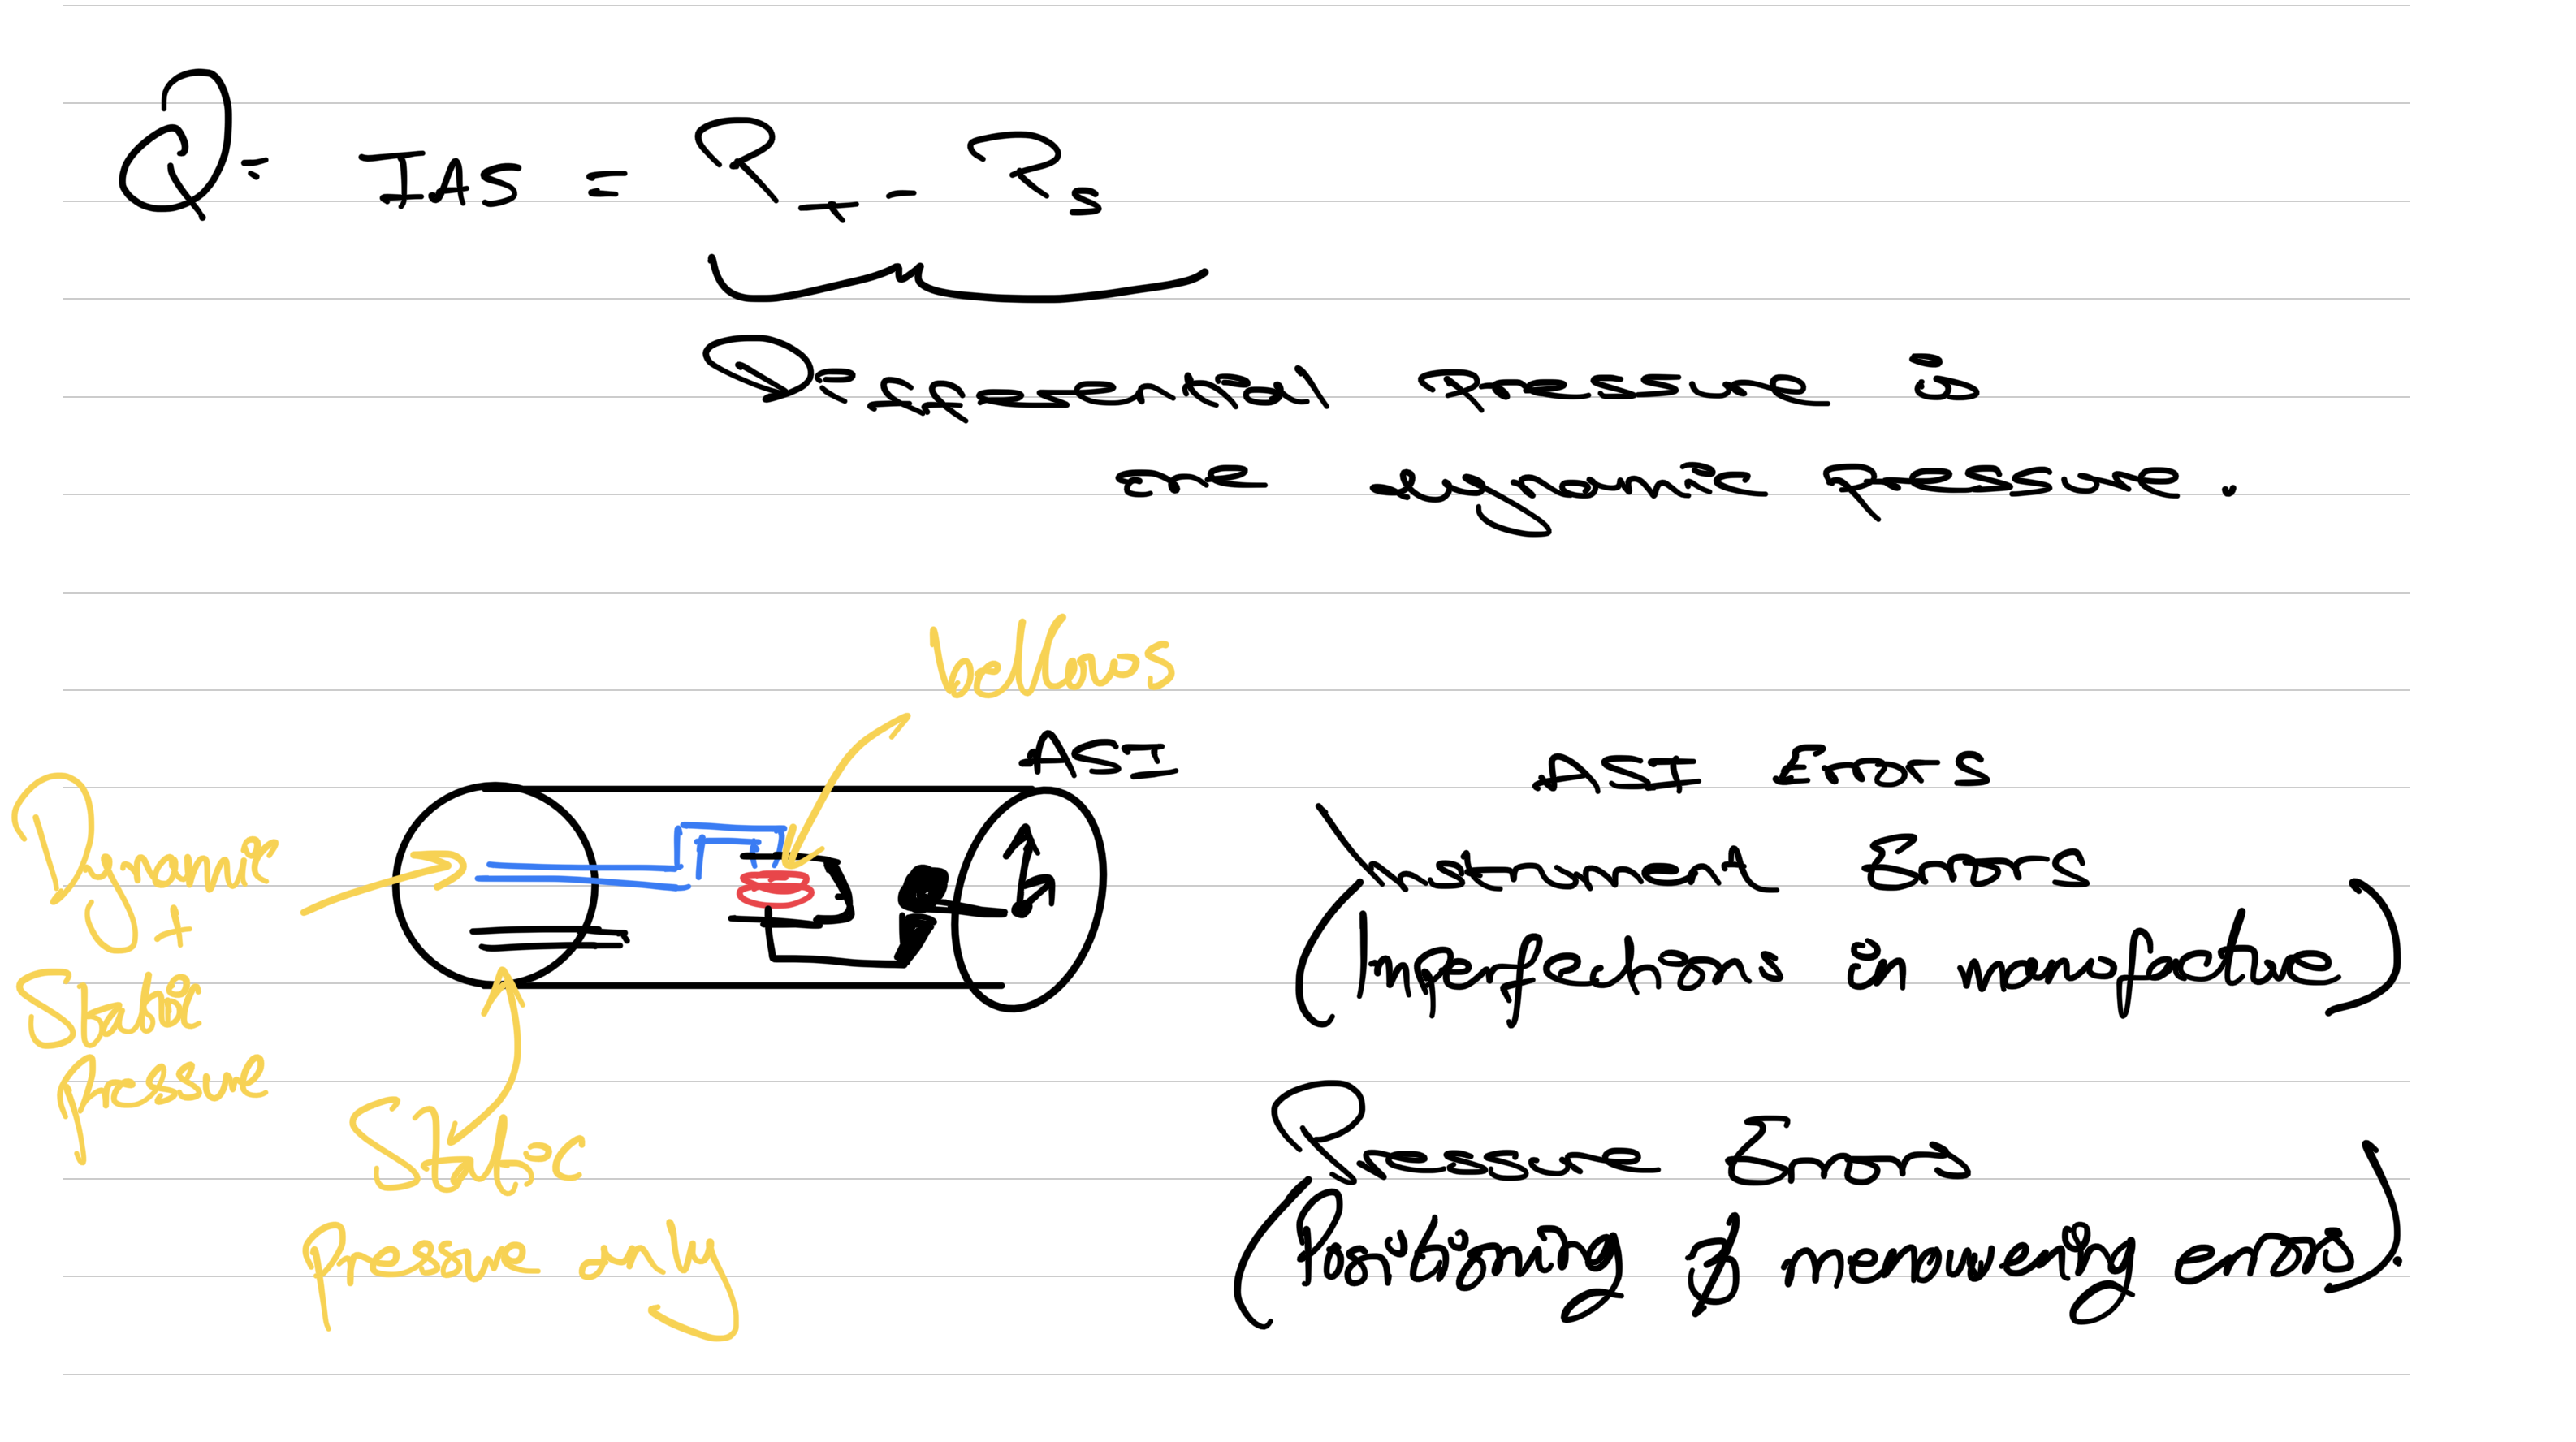 Q = IAS = P_T - P_s
Differential pressure is
the dynamic pressure.
bellows
ASI
Dynamic
+
Static
Pressure
Static
Pressure only
ASI Errors
Instrument Errors
(Imperfections in manufacture)
Pressure Errors
(Positioning & menouvering errors).